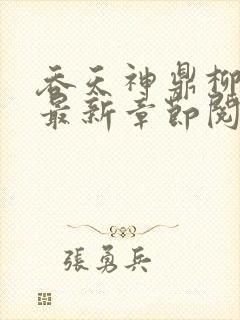 吞天神鼎柳
最新章節閱
張勇兵